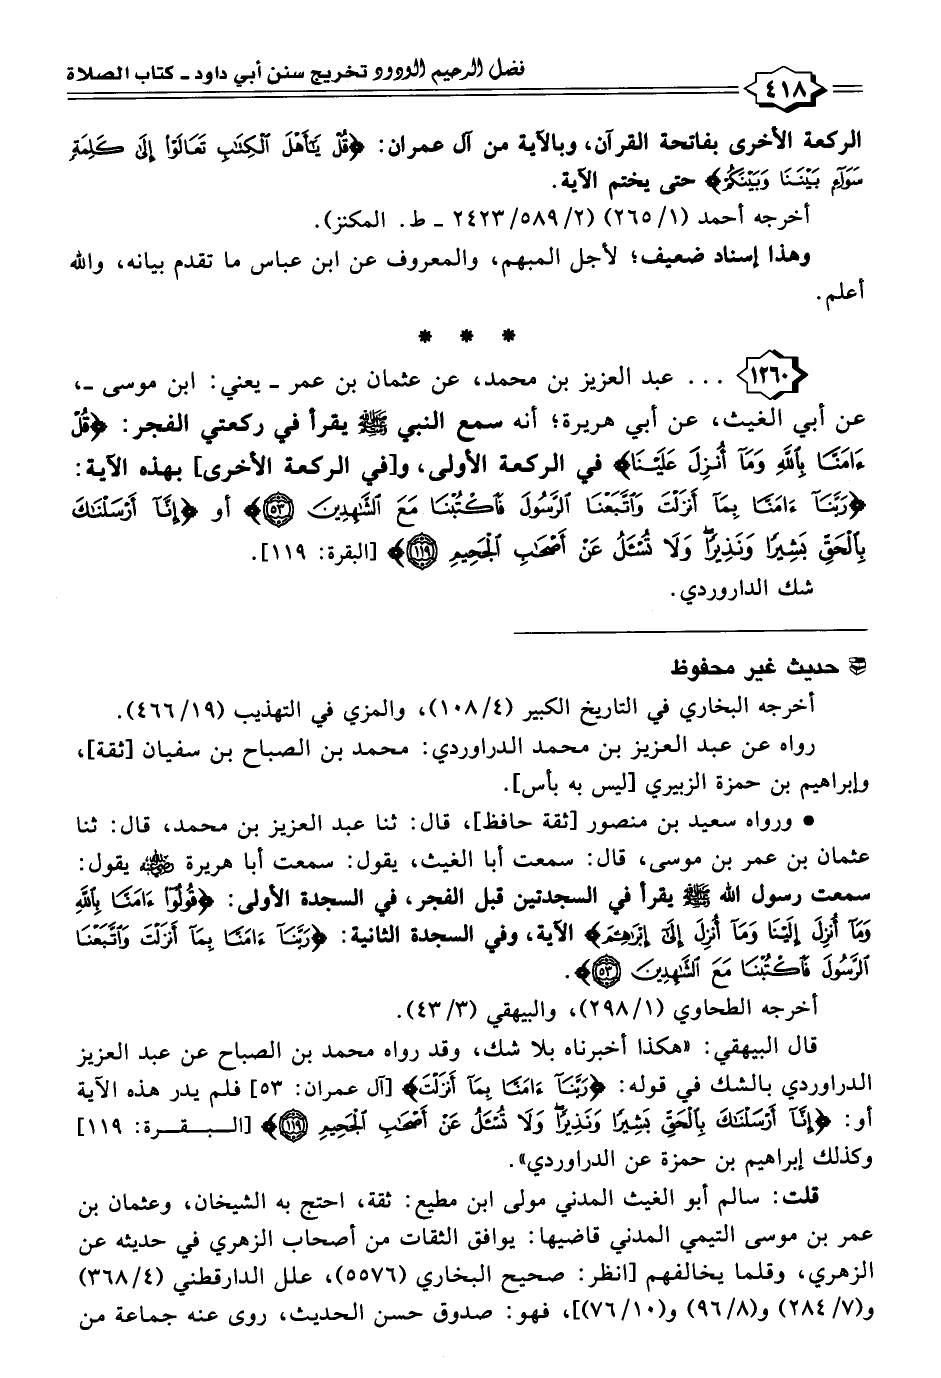 فضل الرحيم الودود تخريج سنن أبي داود - كتاب الصلاة
٤١٨
الركعة الأخرى بفاتحة القرآن، وبالآية من آل عمران: ﴿قُلْ يَٰٓأَهْلَ ٱلْكِتَٰبِ تَعَالَوْا۟ إِلَىٰ كَلِمَةٍ
سَوَآءٍۭ بَيْنَنَا وَبَيْنَكُمْ﴾ حتى يختم الآية.
أخرجه أحمد (١/ ٢٦٥) (٢/ ٥٨٩/ ٢٤٢٣ - ط. المكنز).
وهذا إسناد ضعيف؛ لأجل المبهم، والمعروف عن ابن عباس ما تقدم بيانه، والله
أعلم.
* * *
١٢٦٠ ... عبد العزيز بن محمد، عن عثمان بن عمر - يعني: ابن موسى -،
عن أبي الغيث، عن أبي هريرة؛ أنه سمع النبي ﷺ يقرأ في ركعتي الفجر: ﴿قُلْ
ءَامَنَّا بِٱللَّهِ وَمَآ أُنزِلَ عَلَيْنَا﴾ في الركعة الأولى، و[في الركعة الأخرى] بهذه الآية:
﴿رَبَّنَآ ءَامَنَّا بِمَآ أَنزَلْتَ وَٱتَّبَعْنَا ٱلرَّسُولَ فَٱكْتُبْنَا مَعَ ٱلشَّٰهِدِينَ ٥٣﴾ أو ﴿إِنَّآ أَرْسَلْنَٰكَ
بِٱلْحَقِّ بَشِيرًا وَنَذِيرًا ۖ وَلَا تُسْـَٔلُ عَنْ أَصْحَٰبِ ٱلْجَحِيمِ ١١٩﴾ [البقرة: ١١٩].
شك الداروردي.
حديث غير محفوظ
أخرجه البخاري في التاريخ الكبير (٤/ ١٠٨)، والمزي في التهذيب (١٩/ ٤٦٦).
رواه عن عبد العزيز بن محمد الدراوردي: محمد بن الصباح بن سفيان [ثقة]،
وإبراهيم بن حمزة الزبيري [ليس به بأس].
• ورواه سعيد بن منصور [ثقة حافظ]، قال: ثنا عبد العزيز بن محمد، قال: ثنا
عثمان بن عمر بن موسى، قال: سمعت أبا الغيث، يقول: سمعت أبا هريرة رضي الله عنه يقول:
سمعت رسول الله ﷺ يقرأ في السجدتين قبل الفجر، في السجدة الأولى: ﴿قُولُوٓا۟ ءَامَنَّا بِٱللَّهِ
وَمَآ أُنزِلَ إِلَيْنَا وَمَآ أُنزِلَ إِلَىٰٓ إِبْرَٰهِـۧمَ﴾ الآية، وفي السجدة الثانية: ﴿رَبَّنَآ ءَامَنَّا بِمَآ أَنزَلْتَ وَٱتَّبَعْنَا
ٱلرَّسُولَ فَٱكْتُبْنَا مَعَ ٱلشَّٰهِدِينَ ٥٣﴾.
أخرجه الطحاوي (١/ ٢٩٨)، والبيهقي (٣/ ٤٣).
قال البيهقي: «هكذا أخبرناه بلا شك، وقد رواه محمد بن الصباح عن عبد العزيز
الدراوردي بالشك في قوله: ﴿رَبَّنَآ ءَامَنَّا بِمَآ أَنزَلْتَ﴾ [آل عمران: ٥٣] فلم يدر هذه الآية
أو: ﴿إِنَّآ أَرْسَلْنَٰكَ بِٱلْحَقِّ بَشِيرًا وَنَذِيرًا ۖ وَلَا تُسْـَٔلُ عَنْ أَصْحَٰبِ ٱلْجَحِيمِ ١١٩﴾ [البقرة: ١١٩]
وكذلك إبراهيم بن حمزة عن الدراوردي».
قلت: سالم أبو الغيث المدني مولى ابن مطيع: ثقة، احتج به الشيخان، وعثمان بن
عمر بن موسى التيمي المدني قاضيها: يوافق الثقات من أصحاب الزهري في حديثه عن
الزهري، وقلما يخالفهم [انظر: صحيح البخاري (٥٥٧٦)، علل الدارقطني (٤/ ٣٦٨)
و(٧/ ٢٨٤) و(٨/ ٩٦) و(١٠/ ٧٦)]، فهو: صدوق حسن الحديث، روى عنه جماعة من